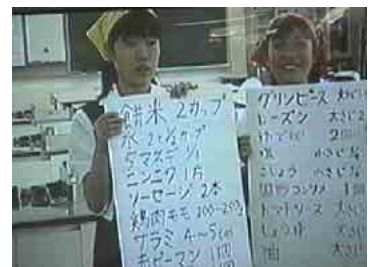 米 2カップ
水 2と½カップ
タマネギ
ニンニク 1片
ソーセージ 2本
鶏肉モモ 200~250g
サラミ 4~5cm
赤ピーマン 1個
グリンピース 大さじ
レーズン 大さじ2
ゆで卵 2個
塩 小さじ
こしょう 小さじ
固形コンソメ 1個
トマトソース 大さじ
しょうゆ 大さじ
油 大さじ